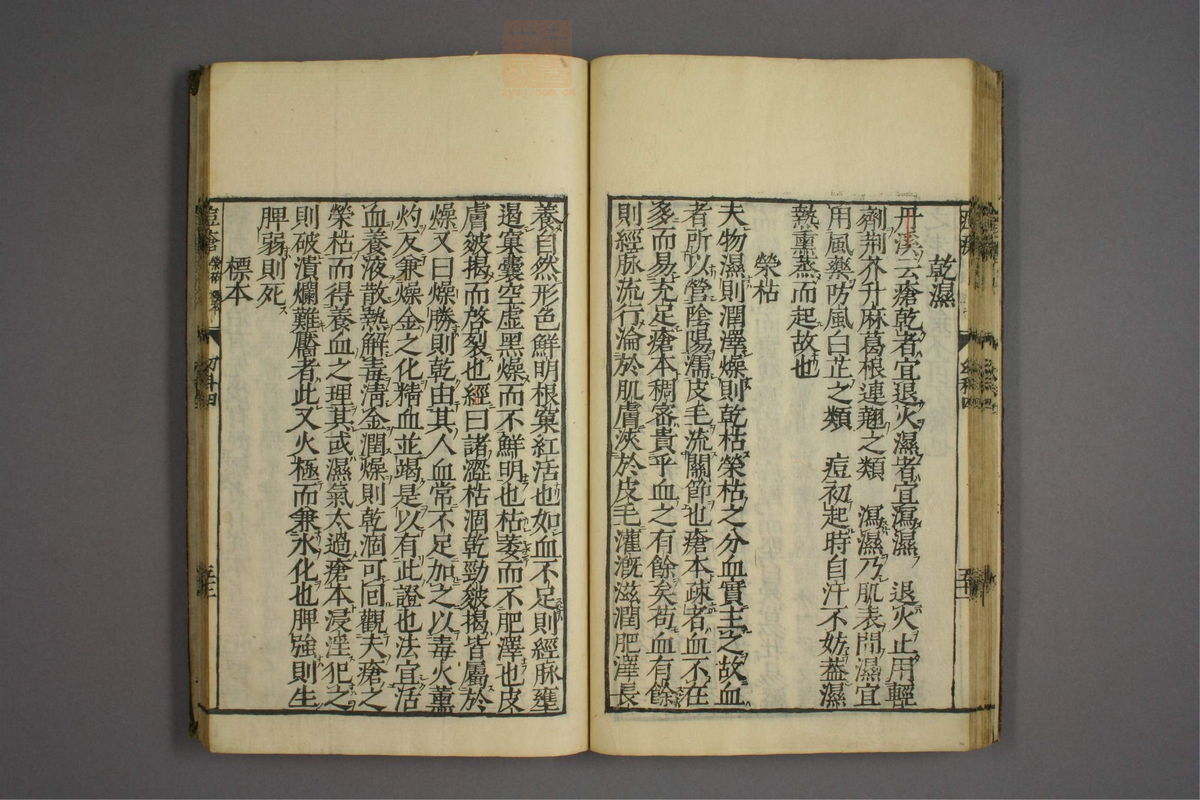 乾濕
丹溪云瘡乾者宜退火濕者宜瀉濕　退火止用輕
劑荆芥升麻葛根連翹之類　瀉濕乃肌表間濕宜
用風藥防風白芷之類　痘初起時自汗不妨葢濕
熱熏蒸而起故也
榮枯
夫物濕則潤澤燥則乾枯榮枯之分血實主之故血
者所以營陰陽濡皮毛流關節也瘡本疎者血不在
多而易充足瘡本稠宻貴乎血之有餘矣苟血有餘
則經脉流行淪於肌膚浹於皮毛灌漑滋潤肥澤長
養自然形色鮮明根窠紅活也如血不足則經脉壅
遏窠囊空虚黑燥而不鮮明也枯萎而不肥澤也皮
膚皴揭而啓裂也經曰諸澀枯涸乾勁皴揭皆屬於
燥又曰燥勝則乾由其人血常不足加之以毒火薰
灼反兼燥金之化精血並竭是以有此證也法宜活
血養液散熱解毒淸金潤燥則乾涸可回觀夫瘡之
榮枯而得養血之理其或濕氣太過瘡本浸淫犯之
則破潰爛難靨者此又火極而兼水化也脾強則生
脾弱則死
標本
痘瘡
榮枯
幼科四